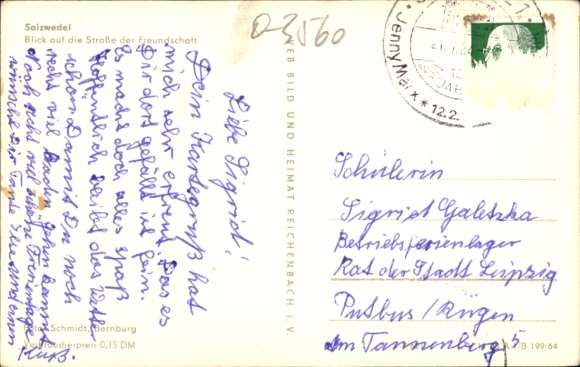 Salzwedel
Blick auf die Straße der Freundschaft
0-3560
Jenny Marx * 12.2.
VEB BILD UND HEIMAT REICHENBACH i. V.
Liebe Sigrid!
Dein Kartengruß hat
mich sehr erfreut. Das es
Dir dort gefällt ist fein.
Es macht doch alles spaß
Hoffentlich bleibt das Wetter
schön Damit Du noch
recht viel Baden gehn kannst
Noch recht viel schöne Ferientage
wünscht Dir Tante
Gruß.
Schülerin
Sigriet Galetzka
Betriebsferienlager
Rat der Stadt Leipzig
Putbus/Rügen
Am Tannenberg 5
Foto: Schmidt, Bernburg
Verbraucherpreis 0,15 DM
A 1/B 199/64